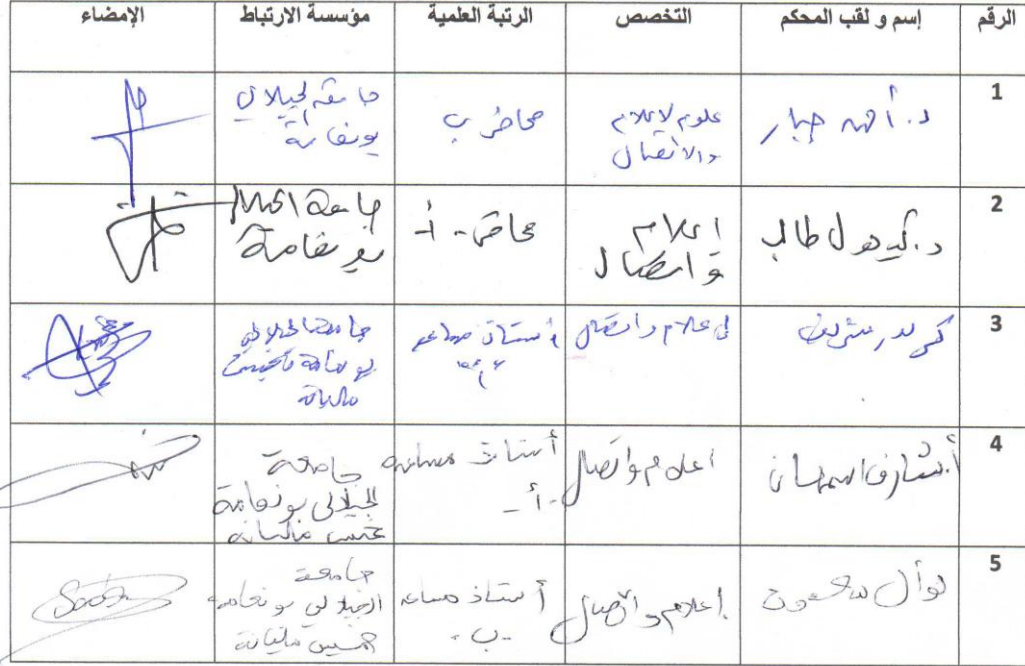 الرقم إسم و لقب المحكم التخصص الرتبة العلمية مؤسسة الارتباط الإمضاء
1 د. أحمد جبار علوم الاعلام محاضر ب جامعة الجيلالي
والاتصال بونعامة
2 د. كيحول طالب اعلام محاضر - أ- جامعة الجيلالي
واتصال بونعامة
3 شريف اعلام واتصال أستاذ مساعد جامعة الجيلالي
بونعامة بخميس
مليانة
4 اعلام واتصال أستاذ مساعد جامعة
-أ- الجيلالي بونعامة
خميس مليانة
5 نوال إعلام واتصال أستاذ مساعد جامعة
-ب- الجيلالي بونعامة
خميس مليانة